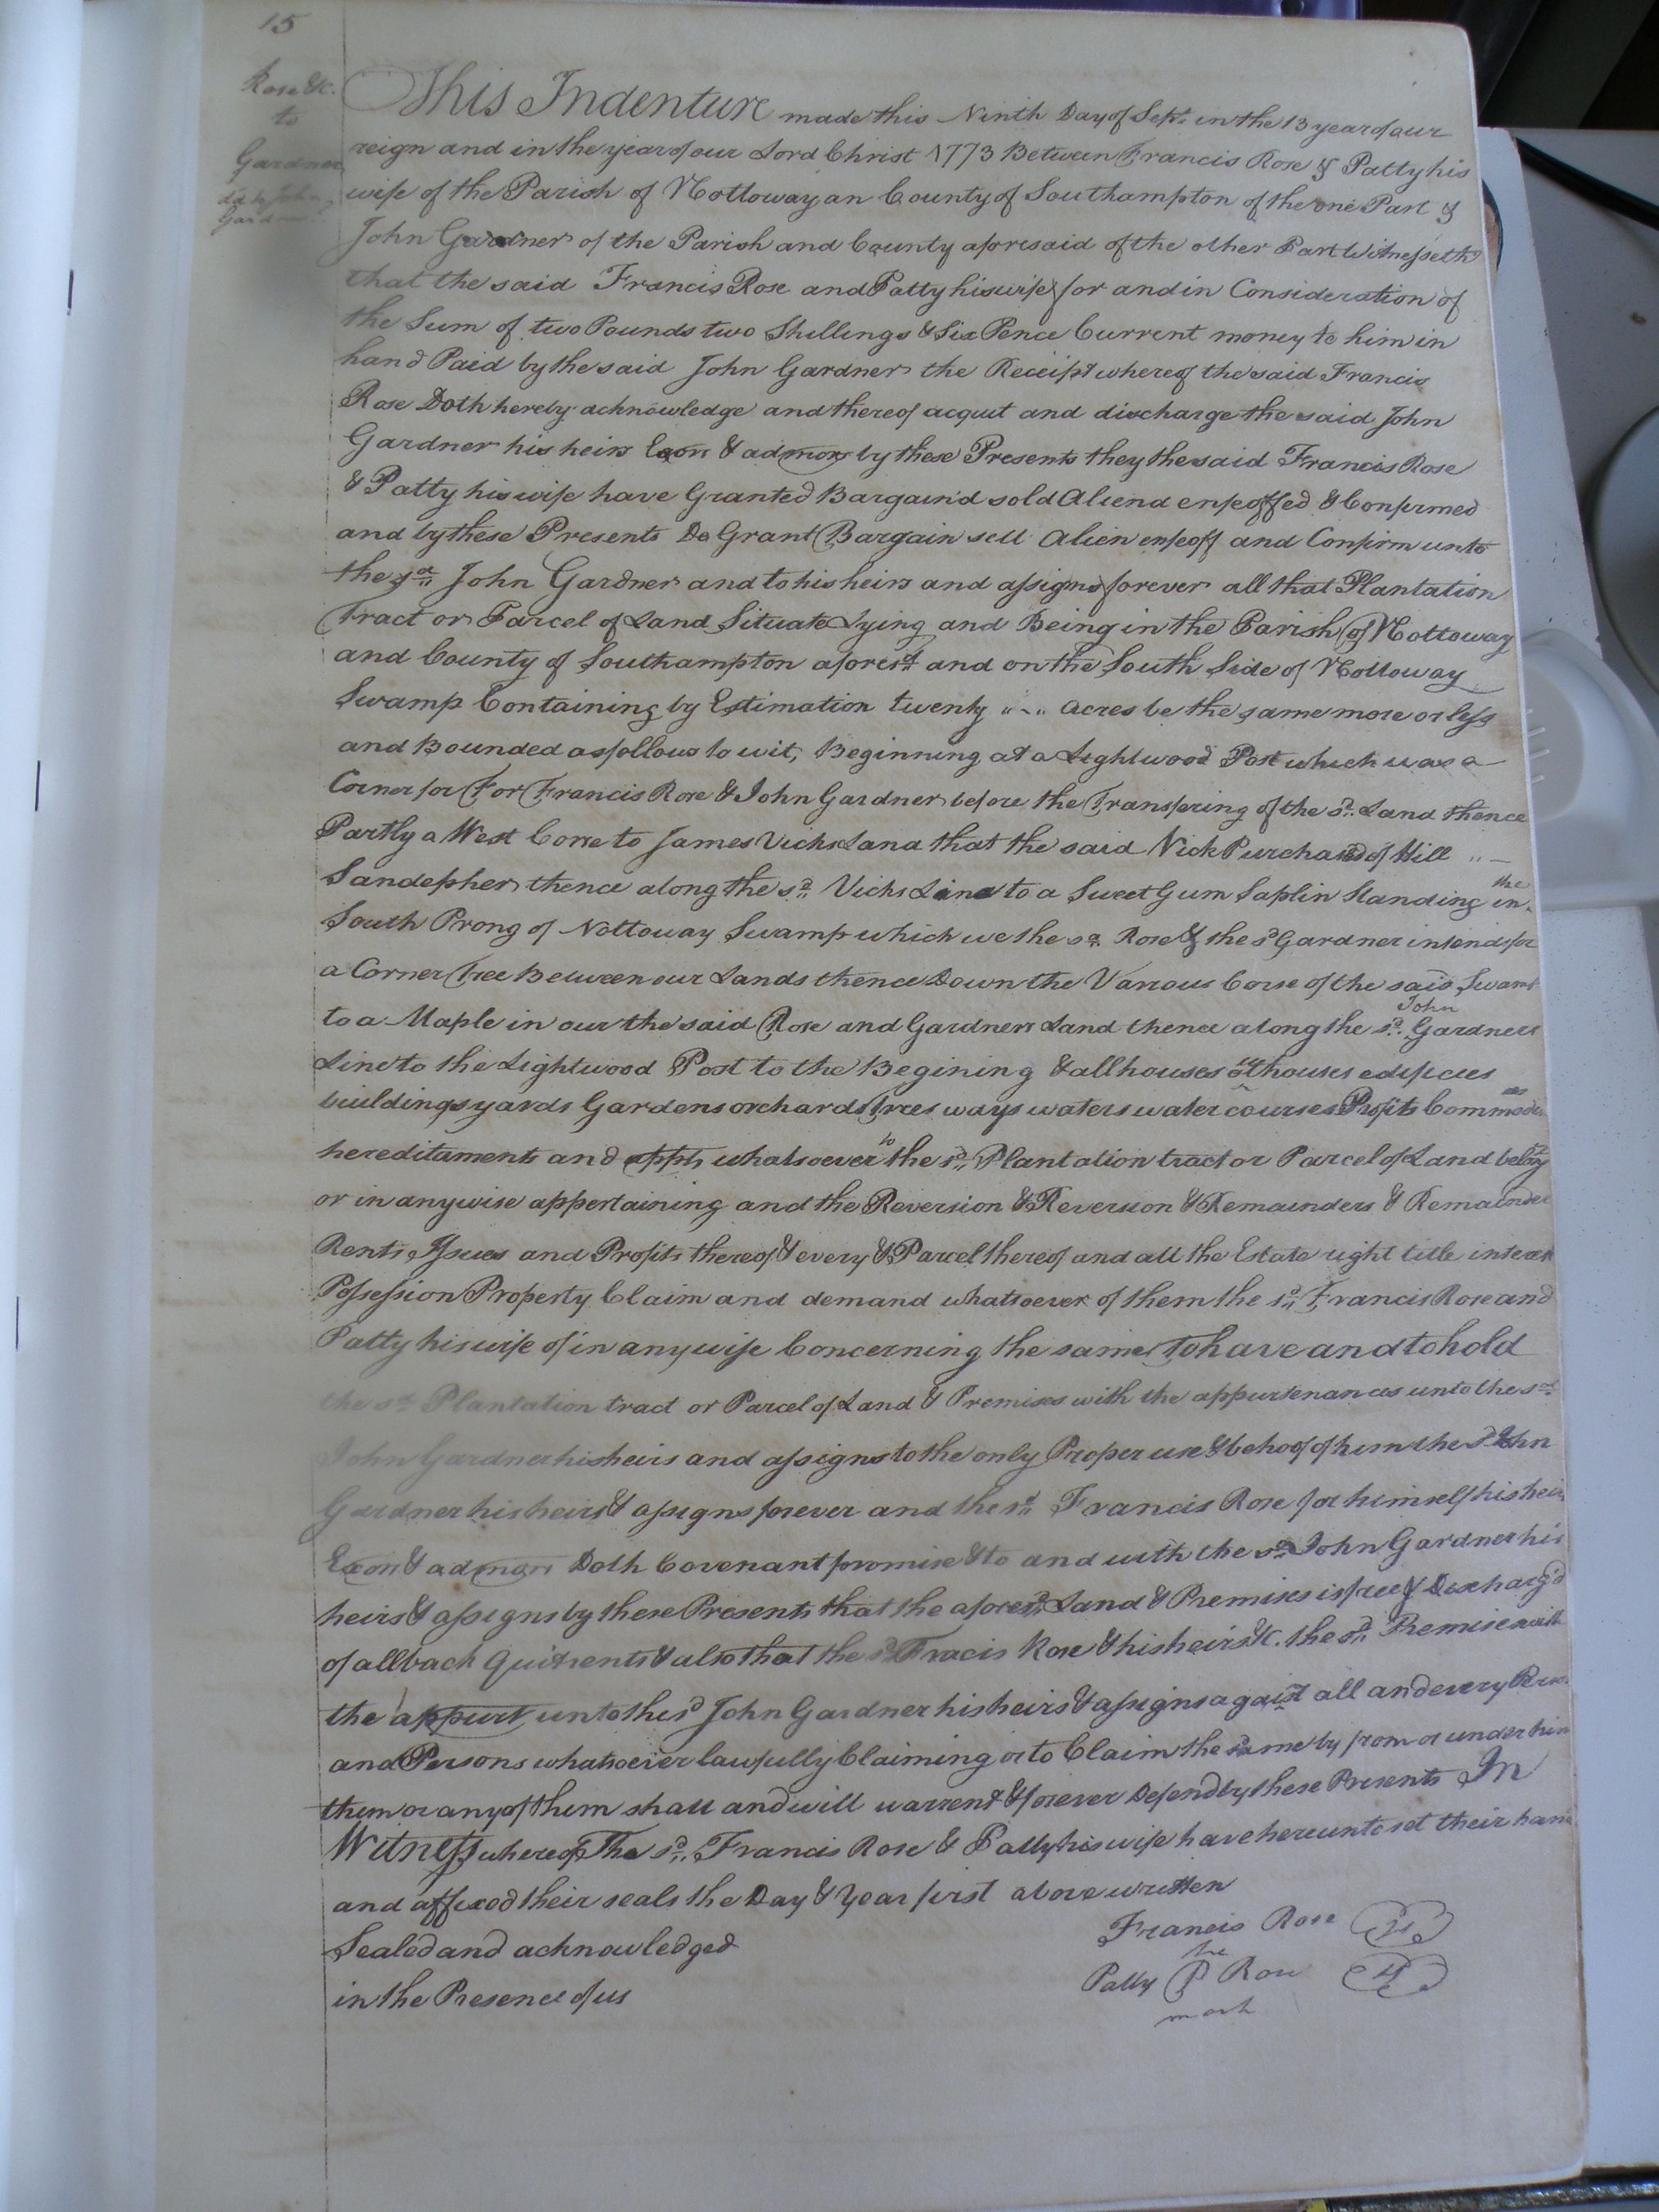 15
Rose &c.
to
Gardner
This Indenture made this Ninth Day of Sept. in the 13 year of our
reign and in the year of our Lord Christ 1773 Between Francis Rose & Patty his
wife of the Parish of Nottoway an County of Southampton of the one Part &
John Gardner of the Parish and County aforesaid of the other Part Witnesseth
that the said Francis Rose and Patty his wife for and in Consideration of
the Sum of two Pounds two Shillings & Six Pence Current money to him in
hand Paid by the said John Gardner the Receipt whereof the said Francis
Rose Doth hereby acknowledge and thereof acquit and discharge the said John
Gardner his heirs Exors & admors by these Presents they the said Francis Rose
& Patty his wife have Granted Bargain'd sold Aliend enfeoffed & Confirmed
and by these Presents Do Grant Bargain sell Alien enfeoff and Confirm unto
the sd John Gardner and to his heirs and assigns forever all that Plantation
Tract or Parcel of Land Situate Lying and Being in the Parish of Nottoway
and County of Southampton aforesd and on the South Side of Nottoway
Swamp Containing by Estimation twenty acres be the same more or less
and Bounded as follows to wit, Beginning at a Lightwood Post which was a
Corner for For Francis Rose & John Gardner before the Transfering of the sd Land thence
Partly a West Corse to James Vicks Land that the said Vick Purchased of Hill
Sandepher thence along the sd Vicks Line to a Sweet Gum Saplin Standing in the
South Prong of Nottoway Swamp which we the sd Rose & the sd Gardner intends for
a Corner Tree Between our Lands thence Down the Various Corse of the said Swamp
to a Maple in our the said Rose and Gardners Land thence along the sd John Gardners
Line to the Lightwood Post to the Begining & all houses outhouses edifices
buildings yards Gardens orchards Trees ways waters water courses Profits
hereditaments and appts whatsoever to the sd Plantation tract or Parcel of Land belong
or in anywise appertaining and the Reversion & Reversion & Remainders & Remainder
Rents Issues and Profits thereof & every & Parcel thereof and all the Estate right title interest
Possession Property Claim and demand whatsoever of them the sd Francis Rose and
Patty his wife of in anywise Concerning the same To have and to hold
the sd Plantation tract or Parcel of Land & Premises with the appurtenances unto the sd
John Gardner his heirs and assigns to the only Proper use & behoof of him the sd John
Gardner his heirs & assigns forever and the sd Francis Rose for himself his heirs
Exors & admors Doth Covenant promise & to and with the sd John Gardner his
heirs & assigns by these Presents that the aforesd Land & Premises is free & Discharg'd
of all back Quitrents & also that the sd Fracis Rose & his heirs &c. the sd Premises with
the appurt unto the sd John Gardner his heirs & assigns against all and every Person
and Persons whatsoever lawfully Claiming or to Claim the same by from or under him
them or any of them shall and will warrent & forever Defend by these Presents In
Witness whereof The sd Francis Rose & Patty his wife have hereunto set their hand
and affixed their seals the Day & Year first above written
Sealed and acknowledged
in the Presence of us
Francis Rose
Patty her P mark Rose